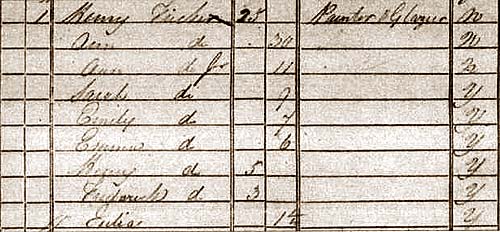 1 Henry 25 Painter & Glazier N
Ann do 30 N
Ann do Jr 11
Sarah do 9 Y
Emily do 7 Y
Emma do 6 Y
Henry do 5 Y
Frederick do 3 Y
Julia Y